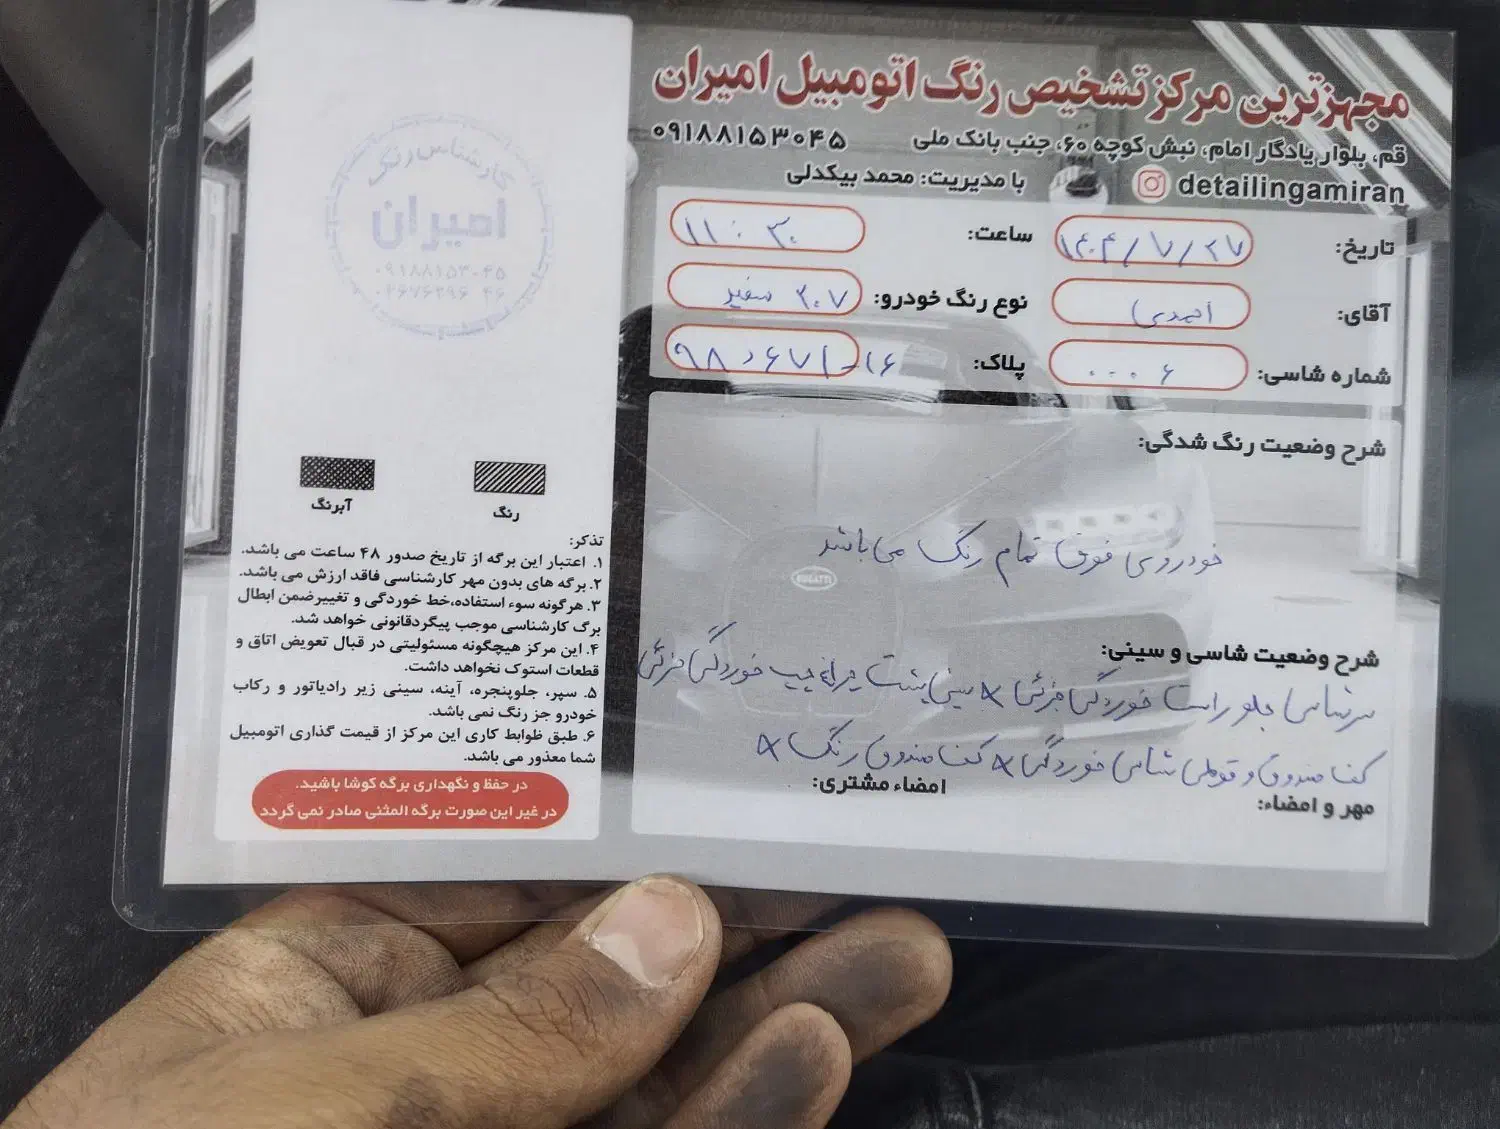 مجهزترین مرکز تشخیص رنگ اتومبیل امیران
قم، بلوار یادگار امام، نبش کوچه ۶۰، جنب بانک ملی ۰۹۱۸۸۱۵۳۰۴۵
detailingamiran با مدیریت: محمد بیکدلی
تاریخ: ۱۴۰۴/۷/۲۷ ساعت: ۱۱:۳۰
آقای: احمدی نوع رنگ خودرو: ۲۰۷ سفید
شماره شاسی: ۰۰۰۶ پلاک: ۹۸د۶۷۱-۱۶
شرح وضعیت رنگ شدگی:
خودروی فوق تمام رنگ می باشد
BUGATTI
شرح وضعیت شاسی و سینی:
سرشاسی جلو راست خوردگی جزئی × سینی پشت چراغ چپ خوردگی جزئی
کف صندوق و قولی شاسی خوردگی × کف صندوق رنگ ×
مهر و امضاء: امضاء مشتری:
کارشناس رنگ
امیران
۰۹۱۸۸۱۵۳۰۴۵
رنگ
آبرنگ
تذکر:
۱. اعتبار این برگه از تاریخ صدور ۴۸ ساعت می باشد.
۲. برگه های بدون مهر کارشناسی فاقد ارزش می باشد.
۳. هرگونه سوء استفاده،خط خوردگی و تغییرضمن ابطال
برگ کارشناسی موجب پیگردقانونی خواهد شد.
۴. این مرکز هیچگونه مسئولیتی در قبال تعویض اتاق و
قطعات استوک نخواهد داشت.
۵. سپر، جلوپنجره، آینه، سینی زیر رادیاتور و رکاب
خودرو جز رنگ نمی باشد.
۶. طبق ظوابط کاری این مرکز از قیمت گذاری اتومبیل
شما معذور می باشد.
در حفظ و نگهداری برگه کوشا باشید.
در غیر این صورت برگه المثنی صادر نمی گردد